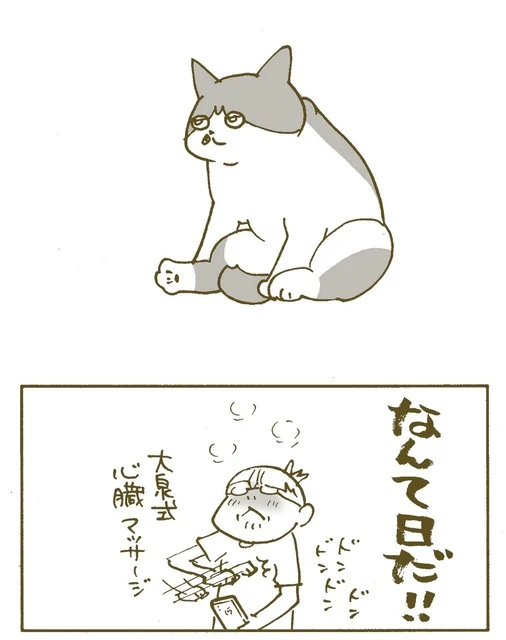 なんて日だ!!
ドン
ドン
ドン
ドン
大泉式
心臓マッサージ